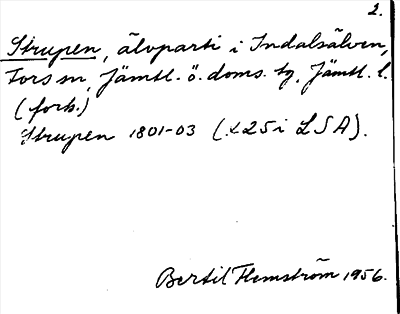 2.
Strupen, älvparti i Indalsälven,
Fors sn, Jämtl. ö. doms. tg, Jämtl. l.
(forts.)
Strupen 1801-03 (L25 i LSA).
Bertil Flemström 1956.